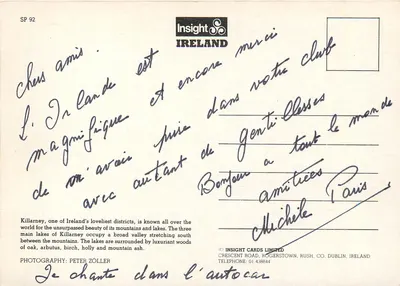 SP 92
Insight
IRELAND
chers amis.
L'Irlande est
magnifique et encore merci
de m'avoir prise dans votre club
avec autant de gentillesses
Bonjour a tout le monde
amitiées
Michèle Paris
Je chante dans l'autocar
Killarney, one of Ireland's loveliest districts, is known all over the
world for the unsurpassed beauty of its mountains and lakes. The three
main lakes of Killarney occupy a broad valley stretching south
between the mountains. The lakes are surrounded by luxuriant woods
of oak, arbutus, birch, holly and mountain ash.
PHOTOGRAPHY: PETER ZOLLER
© INSIGHT CARDS LIMITED
CRESCENT ROAD, ROGERSTOWN, RUSH, CO. DUBLIN, IRELAND
TELEPHONE: 01 438644